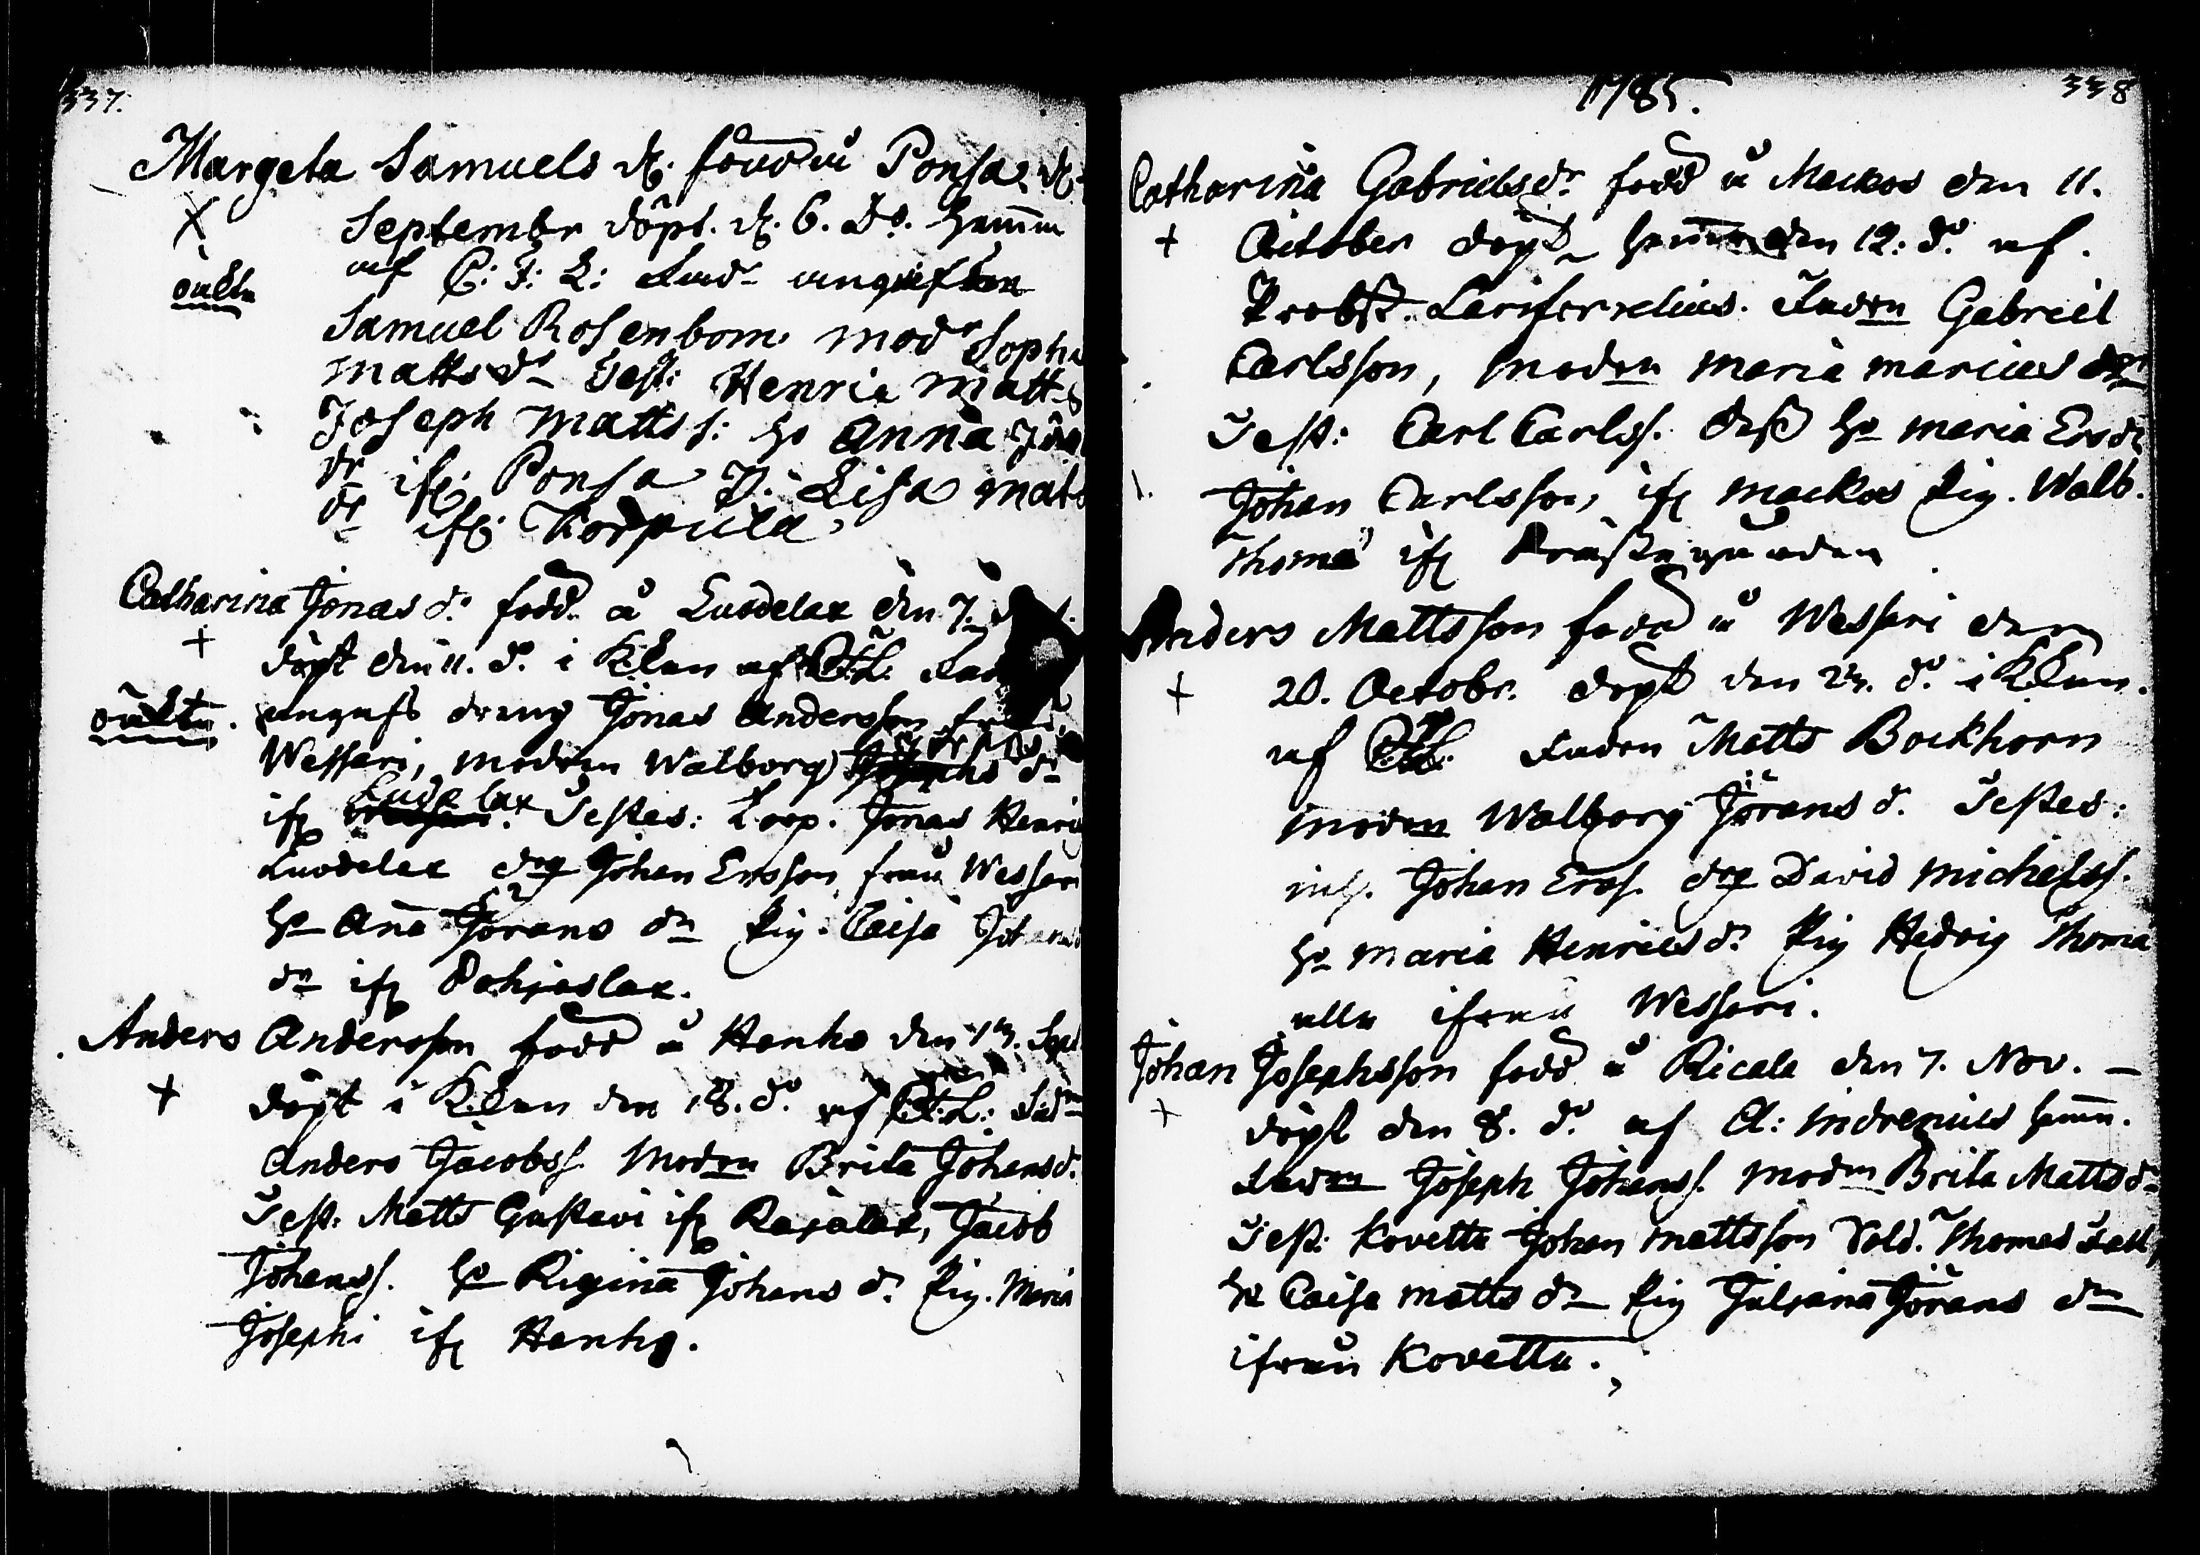 337.
Margeta Samuels dr. född å Ponsa d.
Septembr döpt. d. 6. do. hemma
af C: F: L: Fadr ungkarlen
oäkta
Samuel Rosenbom modr Sophia
Matts dr Test: Henric Matts
Joseph Matts s: ho Anna Jör
dr ifr. Ponsa P. Lisa Mats
dr ifr. Korpula.
Catharina Jonas dr. född å Luodelax den 7.
döpt den 11. do. i K:kan af C.F.L. Fad
oäkta. ungefs dräng Jonas Andersson från
Wessari, modren Walborg dr
ifr Luodelax. Testes: Corp. Jonas Henric
Luodelax drg Johan Ersson från Wessari
ho Anna Jörans dr Pig. Caisa Johans
dr ifr Pohjoslax.
Anders Andersson född å Henho den 17. Sept
döpt i K:kan den 18. do. af C.F.L: Fadr
Anders Jacobss. Modren Brita Johansd.
Test. Matts Gustavi ifr Rajalax, Jacob
Johanss. ho Rigina Johans dr. Pig. Maria
Josephi ifr Henho.
1785.
338
Catharina Gabrielsdr född å Mackos den 11.
October döpt hemma den 12: do. af
Probst. Fadren Gabriel
Carlsson, Modren Maria Marcus dr
Test: Carl Carlss. dess ho Maria Ersdr
Johan Carlsson, ifr Mackos Pig. Walb.
Thomæ ifr Prästegården
Anders Mattsson född å Wessari den
20. Octobr. döpt den 23. do. i K:kan.
af C.F.L. Fadren Matts Bockhorn
Modren Walborg Jörans dr. Testes:
inh. Johan Ers. drg David Michelss.
ho Maria Henricsdr Pig Hedvig Thomæ
alla ifrån Wessari.
Johan Josephsson född å Ricala den 7. Nov. –
döpt den 8. do. af A: Indrenius hemm.
Fadren Joseph Johanss. modren Brita Mattsdr
Test. Kovetta Johan Mattsson Sold. Thomas
ho Caisa Matts dr Pig Juliana Jörans dr
ifrån Kovetta.